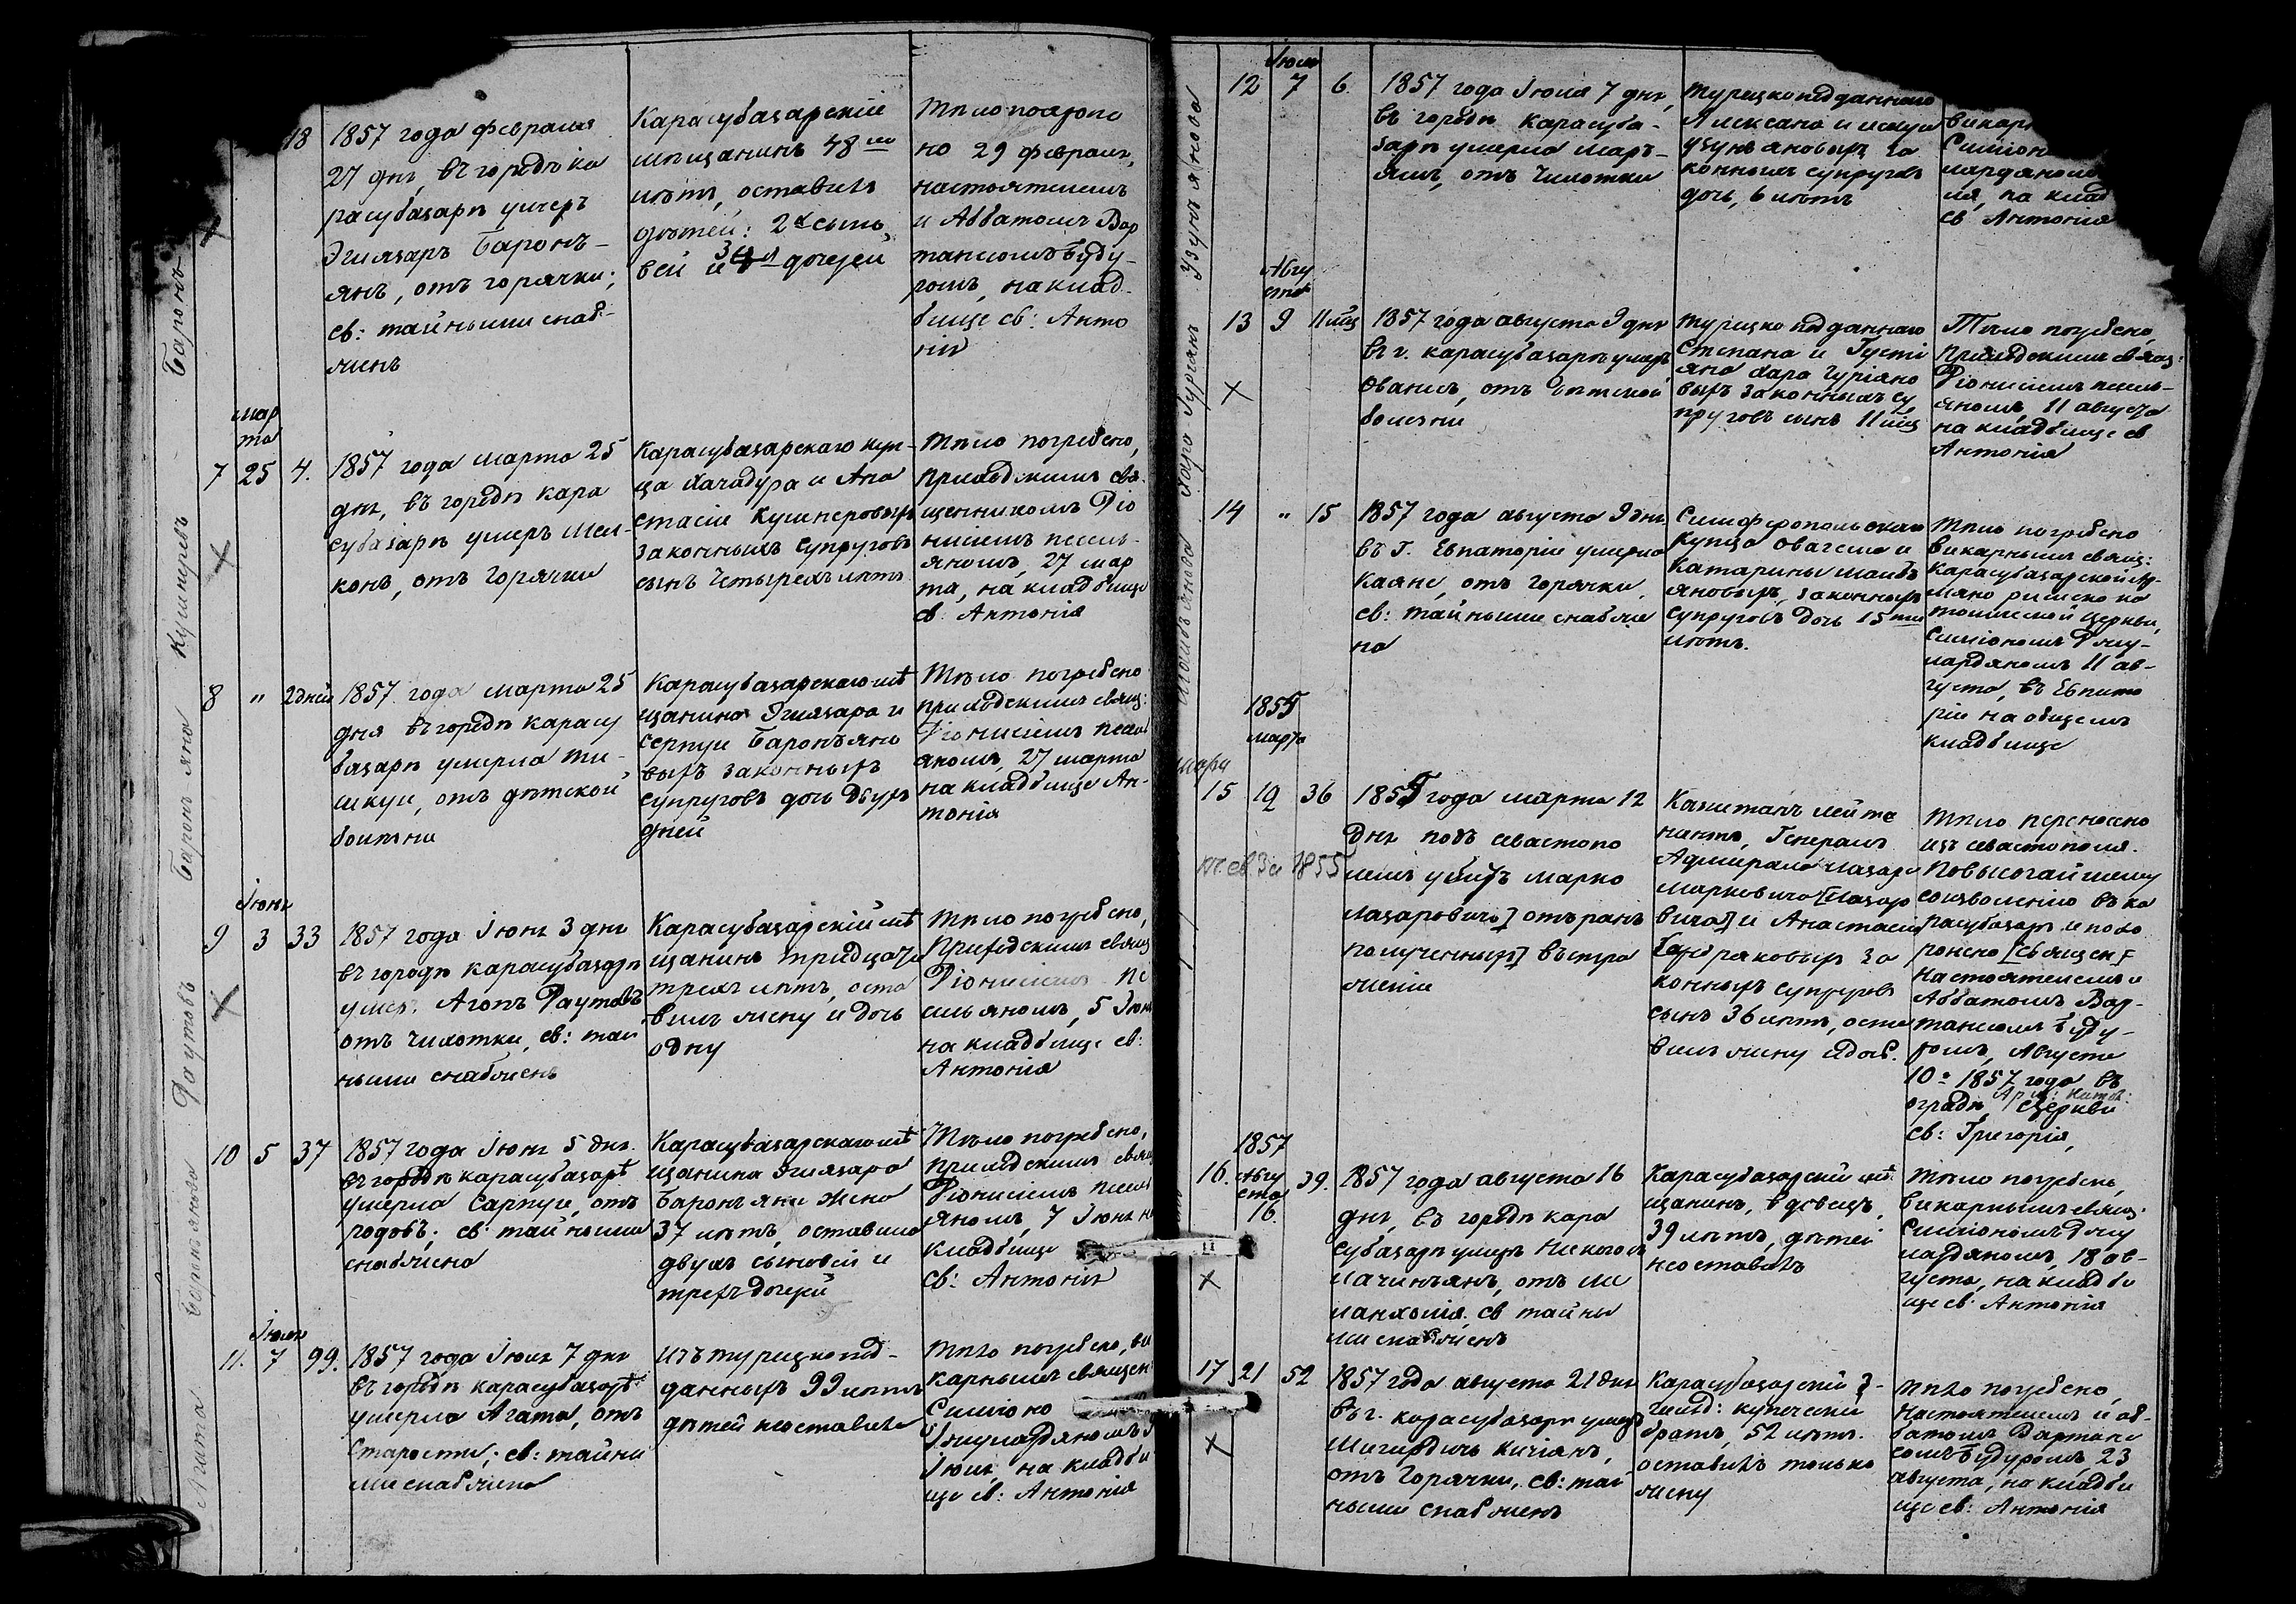 18
1857 года февраля
27 дня, въ городѣ Ка
расубазарѣ умеръ
Эгиязаръ Баронъ-
янъ, отъ горячки;
св: тайными снаб-
женъ
Карасубазарскій
мѣщанинъ 48 ми
лѣтъ, оставилъ
дѣтей: 2х сыно
вей и 3 дочерей
Тѣло погребе
но 29 февраля,
настоятелемъ
и Аббатомъ Вар
танесомъ Буду-
ромъ, на клад-
бище св: Анто
нія
Баронъ
мар
та
7 25 4.
1857 года марта 25
дня, въ городѣ Кара
субазарѣ умеръ Мел-
конъ, отъ горячки
Карасубазарскаго куп-
ца Хачадура и Ана
стасіи Кушнеровыхъ
законныхъ супруговъ
сынъ четырехъ лѣтъ
Тѣло погребено,
приходскимъ свя
щенникомъ Діо
нисіемъ песель-
яномъ, 27 мар
та, на кладбище
св. Антонія
Кушнеревъ
8 " 2 дней
1857 года марта 25
дня въ городѣ Карасу
базарѣ умерла
отъ дѣтской
болѣзни
Карасубазарскаго мѣ
щанина Эгиязара и
Серпуи Баронъяно
выхъ законныхъ
супруговъ дочь двухъ
дней
Тѣло погребено
приходскимъ свящ:
Діонисіемъ песел
яномъ, 27 марта
на кладбище Ан-
тонія
Баронъ яно
Іюня
9 3 33
1857 года Іюня 3 дня
въ городѣ Карасубазарѣ
умеръ Агопъ Даутовъ
отъ чихотки, св: тай
ными снабженъ
Карасубазарскій мѣ
щанинъ тридцати
трехъ лѣтъ, оста
вилъ жену и дочь
одну
Тѣло погребено,
приходскимъ свящ
Діонисіемъ Пе
сельяномъ, 5 Іюня
на кладбище св:
Антонія
Даутовъ
10 5 37
1857 года Іюня 5 дня
въ городѣ Карасубазарѣ
умерла Сарпуи, отъ
родовъ; св: тайными
снабжена
Карасубазарскаго мѣ
щанина Эгиязара
Баронъяна жена
37 лѣтъ, оставила
двухъ сыновей и
трехъ дочерей
Тѣло погребено,
приходскимъ свящ
Діонисіемъ песел
яномъ, 7 Іюня на
кладбище
св: Антонія
Іюля
11. 7 99.
1857 года Іюля 7 дня
въ городѣ Карасубазарѣ
умерла Агата, отъ
старости; св: тайны
ми снабжена
Изъ турецкопод-
данныхъ 99 лѣтъ
дѣтей неоставила
Тѣло погребено, ви
карнымъ священ
Симіоно
Джумарджяномъ
Іюля, на кладби
ще св: Антонія
Агата
Іюля
12 7 6.
1857 года Іюля 7 дня,
въ городѣ Карасуба-
зарѣ умерла Марь-
ямъ, отъ чихотки
турецкоподданнаго
Алексана и
Узунъ яновыхъ за
конныхъ супруговъ
дочь, 6 лѣтъ
викар
Симіон
марджяномъ
ля, на клад
св Антонія
Узунъ янова
Авгу
ста
13 9 11 мѣц
1857 года августа 9 дня
въ г. Карасубазарѣ умеръ
Ованесъ, отъ дѣтской
болѣзни
турецко подданнаго
Степана и Густі
яна Хара Гуріяно
выхъ законныхъ су
пруговъ сынъ 11 мѣц
Тѣло погребено,
приходскимъ свящ:
Діонисіемъ песель-
яномъ, 11 августа
на кладбище св
Антонія
Хара Гуріянъ
14 " 15
1857 года августа 9 дня
въ Г. Евпаторіи умерла
Каяне, отъ горячки,
св: тайными снабже
на
Симферопольскаго
купца Овагема и
Катарины
яновыхъ, законныхъ
супруговъ дочь 15 ти
лѣтъ.
Тѣло погребено
викарнымъ свящ:
Карасубазарской Ар-
мяно римско ка
толической церкви,
Симіономъ Джу-
марджяномъ 11 ав-
густа, въ Евпато
ріи на общемъ
кладбище
1855
марта
15 12 36
1855 года марта 12
дня подъ Севастопо
лемъ убитъ Марко
Лазаровичъ] отъ ранъ
полученныхъ] въ стра
женіи
За 1855
Капитанъ лейте
нантъ, Генералъ
Адмирала Лазаря
Марковича [Лазаро
вича] и Анастасіи
законныхъ супруговъ
сынъ 36 лѣтъ, оста
вилъ жену вдов.
Тѣло перенесено
изъ Севастополя.
Повысочайшему
соизволенію въ Ка
расубазаръ и похо
ронено [священ]
настоятелемъ и
Аббатомъ Вар-
танесомъ Буду-
ромъ, Августа
10го 1857 года въ
оградѣ Арм: Катол: церкви
св: Григорія,
1857
16. Авгу
ста
16. 39.
1857 года августа 16
дня, въ городѣ Кара
субазарѣ умеръ Никогосъ
Мачинъянъ, отъ ме
ланхоліи, св тайны
ми снабженъ
Карасубазарскій мѣ
щанинъ, вдовецъ,
39 лѣтъ, дѣтей
неоставилъ
Тѣло погребено,
викарнымъ свящ:
Симіономъ Джу
марджяномъ, 18 ав-
густа, на кладби
ще св: Антонія
17 21 52
1857 года августа 21 дня
въ г. Карасубазарѣ умеръ
Мигирдичъ Кичіянъ,
отъ горячки, св: тай
ными снабженъ
Карасубазарскій 3-
гильд: купеческій
братъ, 52 лѣтъ.
оставилъ только
жену
Тѣло погребено,
настоятелемъ и аб-
батомъ Вартане
сомъ Будуромъ, 23
августа, на кладби
ще св: Антонія